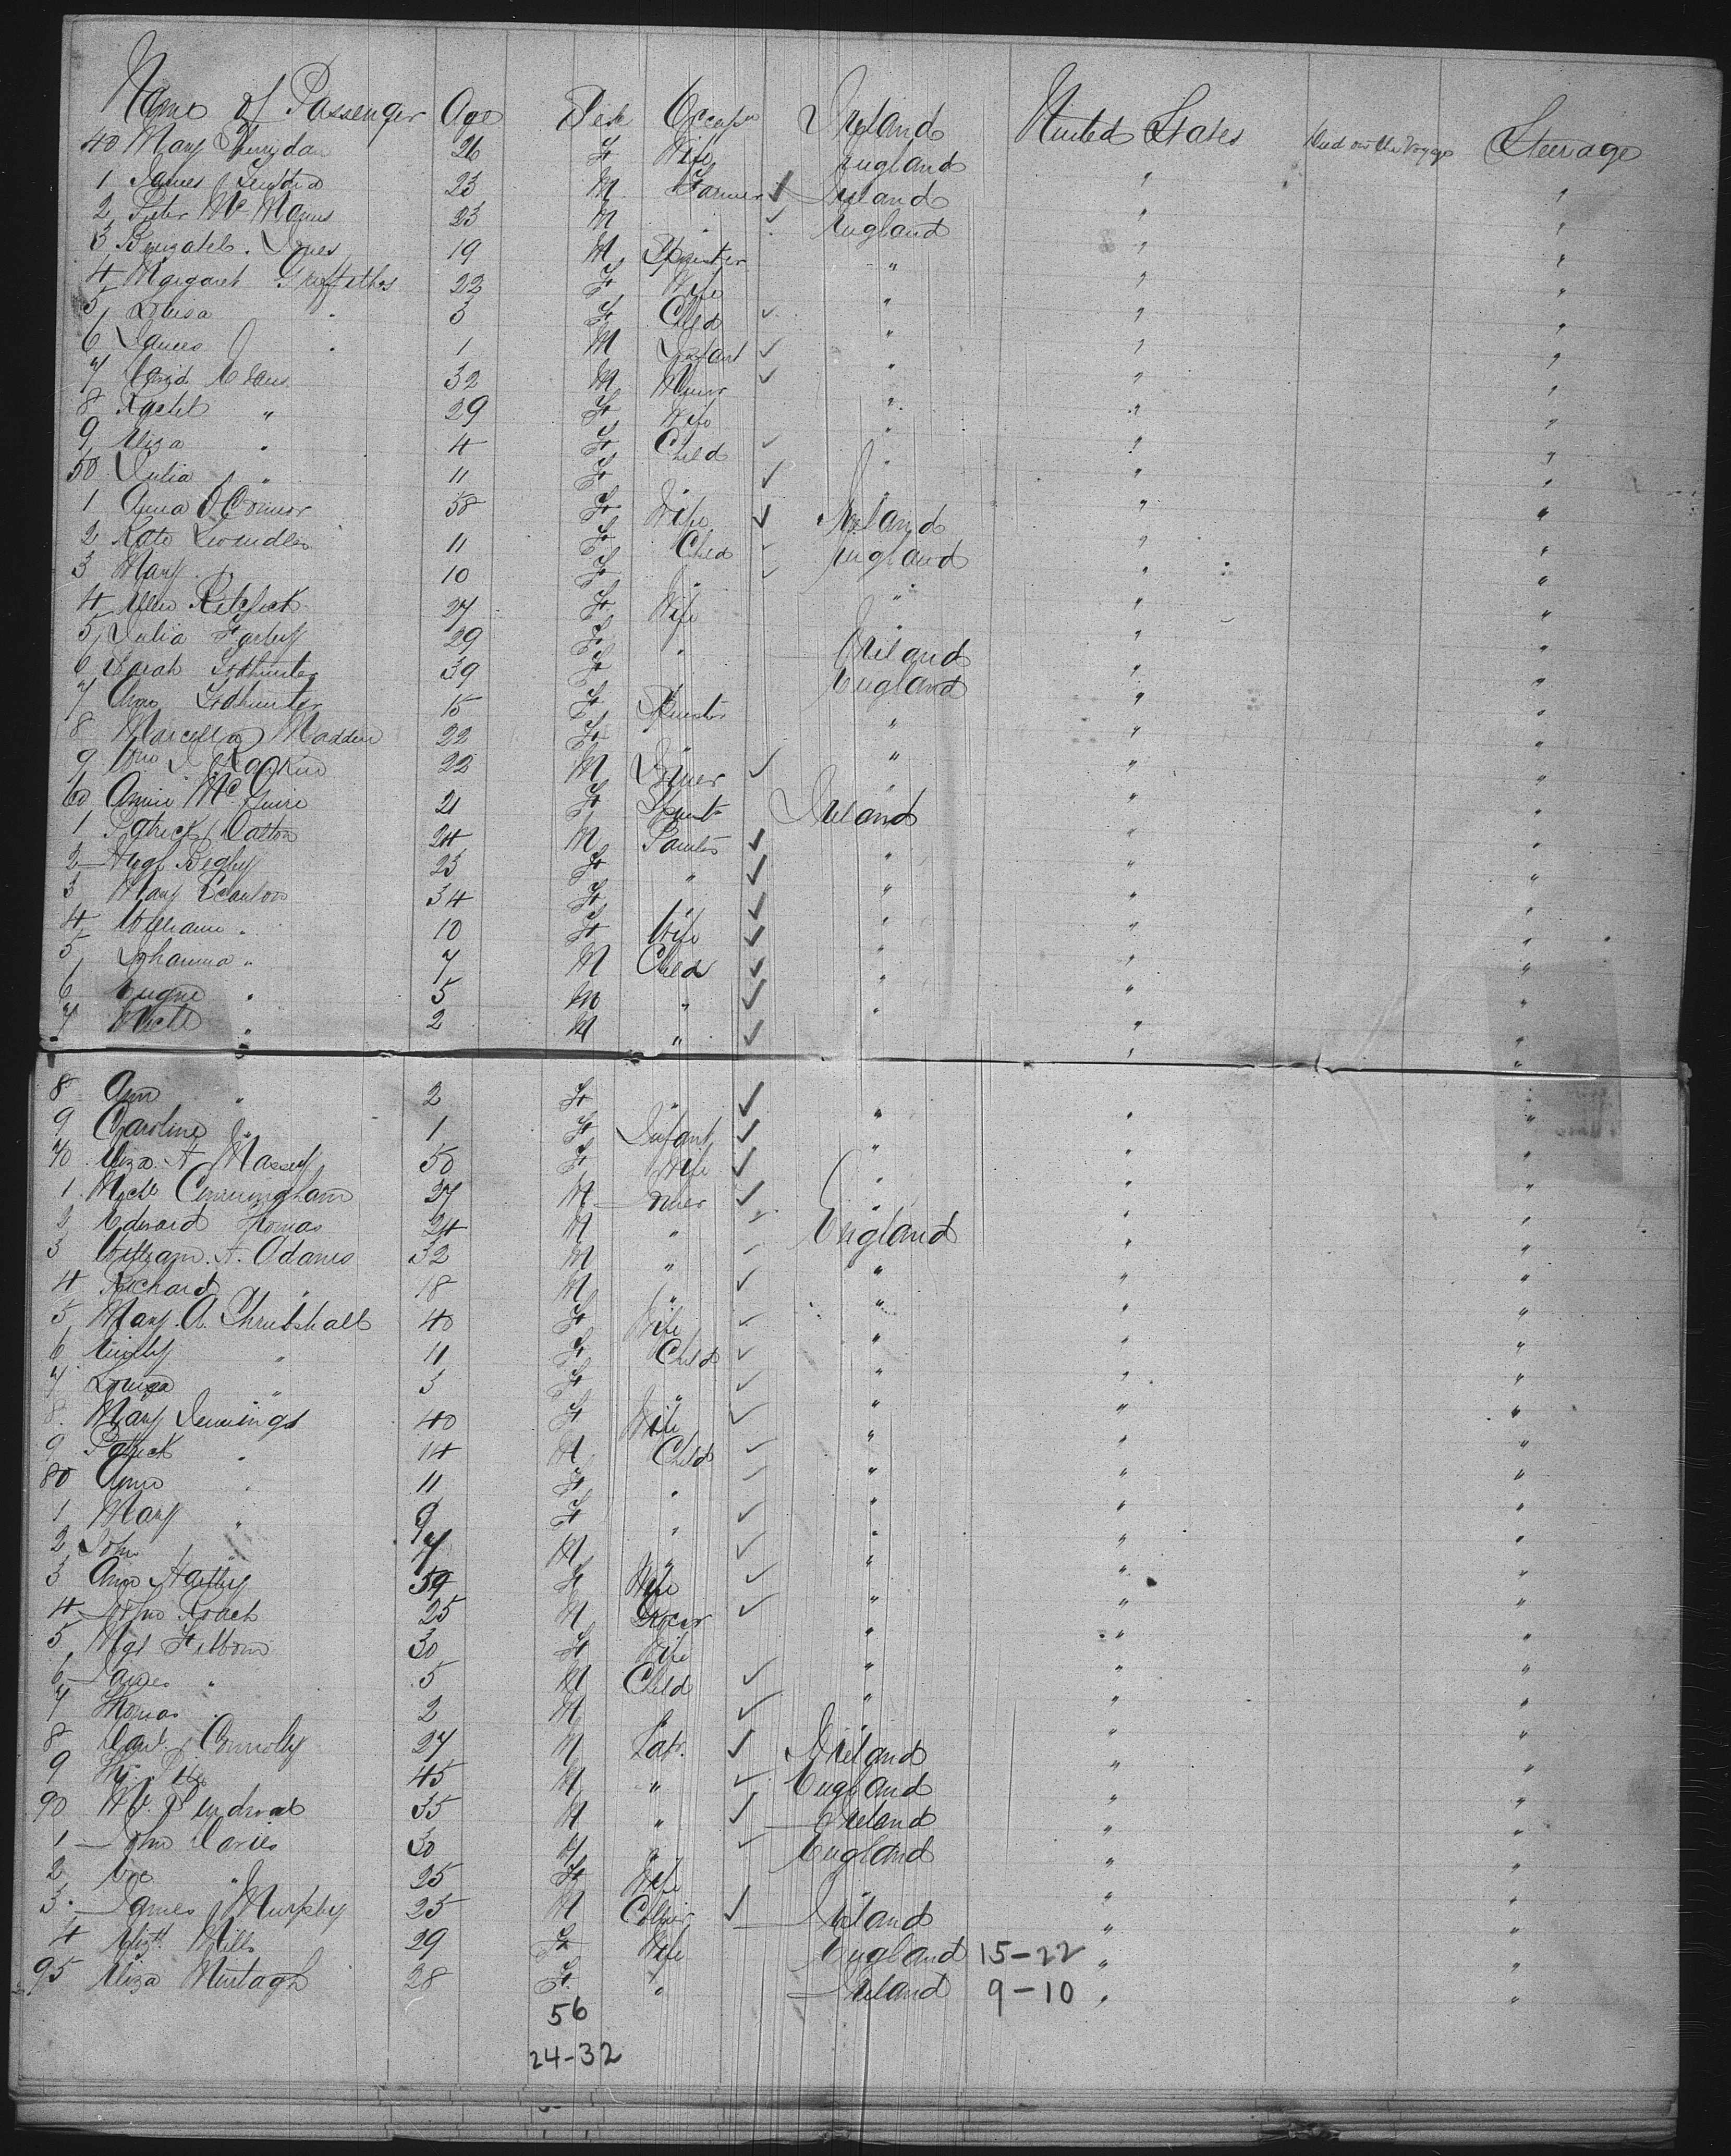 Name of Passenger Age Sex Occupn Ireland United States Died on the Voyage Steerage
40 Mary 26 F Wife England
1 James 23 M Farmer ✓ Ireland " "
2 Peter McManus 23 M " ✓ England " "
3 Jones 19 M Spinster " " "
4 Margaret Griffiths 22 F Wife " " "
5 Louisa " 3 F Child ✓ " " "
6 James " 1 M Infant ✓ " " "
7 David Evans 32 M Miner ✓ " " "
8 Rachel " 29 F Wife " " "
9 Eliza " 4 F Child ✓ " " "
50 Julia " 11 F " ✓ " " "
1 Anna O'Connor 38 F Wife ✓ Ireland " "
2 Kate 11 F Child ✓ England " "
3 Mary " 10 F " ✓ " " "
4 Ellen 27 F Wife " " "
5 Julia 29 F " Ireland " "
6 Sarah Todhunter 39 F England " "
7 Todhunter 15 F Spinster " " "
8 Marcella Madden 22 F " " " "
9 Rankin 22 M Joiner ✓ " " "
60 Annie McGuire 21 F Spinstr Ireland " "
1 Patrick Dalton 24 M Painter ✓ " " "
2 Hugh Begley 23 F " ✓ " " "
3 Mary Scanlon 34 F " ✓ " " "
4 William " 10 F Wife ✓ " " "
5 Johanna " 7 M Child ✓ " " "
6 Eugne " 5 M " ✓ " " "
7 Michl " 2 M " ✓ " "
8 Ann " 2 F " ✓ " " "
9 Caroline " 1 F Infant ✓ " " "
70 Eliza A Massey 50 F Wife ✓ " " "
1 Michl Cunningham 27 M Miner ✓ " " "
2 Edward Thomas 24 M " ✓ England " "
3 William A. Adams 32 M " ✓ " " "
4 Richard " 18 M " ✓ " " "
5 Mary A. Thrubshall 40 F Wife ✓ " " "
6 Emily " 11 F Child ✓ " " "
7 Louisa " 3 F " ✓ " " "
8 Mary Jennings 40 F Wife ✓ " " "
9 Patrick " 14 M Child ✓ " " "
80 Anne " 11 F " ✓ " " "
1 Mary " 9 F " ✓ " " "
2 John " 7 M " ✓ " " "
3 Ann 59 F Wife ✓ " " "
4 John Roach 25 M Grocer ✓ " " "
5 Mgt 30 F Wife " " "
6 James " 5 M Child ✓ " " "
7 Thomas " 2 M " ✓ " " "
8 Danl Connolly 27 M Labr ✓ Ireland " "
9 45 M " ✓ England " "
90 35 M " ✓ Ireland " "
1 John Davies 30 M " ✓ England " "
2 " 25 F Wife " " "
3 James Murphy 25 M Collier ✓ Ireland " "
4 Elizth Mills 29 F Wife England 15-22 " "
95 Eliza Murtagh 28 F " Ireland 9-10 " "
56
24-32